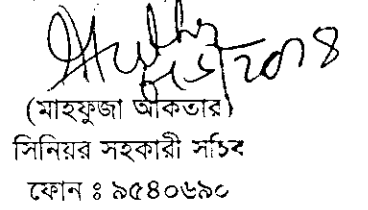 2018
(মাহফুজা আকতার)
সিনিয়র সহকারী সচিব
ফোন ঃ ৯৫৪০৬৯০